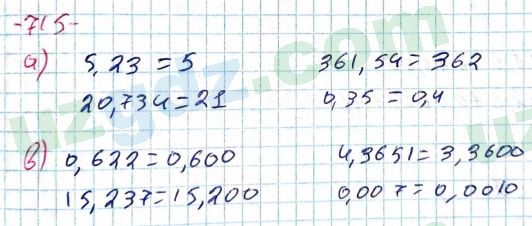 -715-
а) 5,23 = 5 361,54 = 362
20,734 = 21 0,35 = 0,4
в) 0,622 = 0,600 4,3651 = 3,3600
15,237 = 15,200 0,007 = 0,0010
uzgdz.com